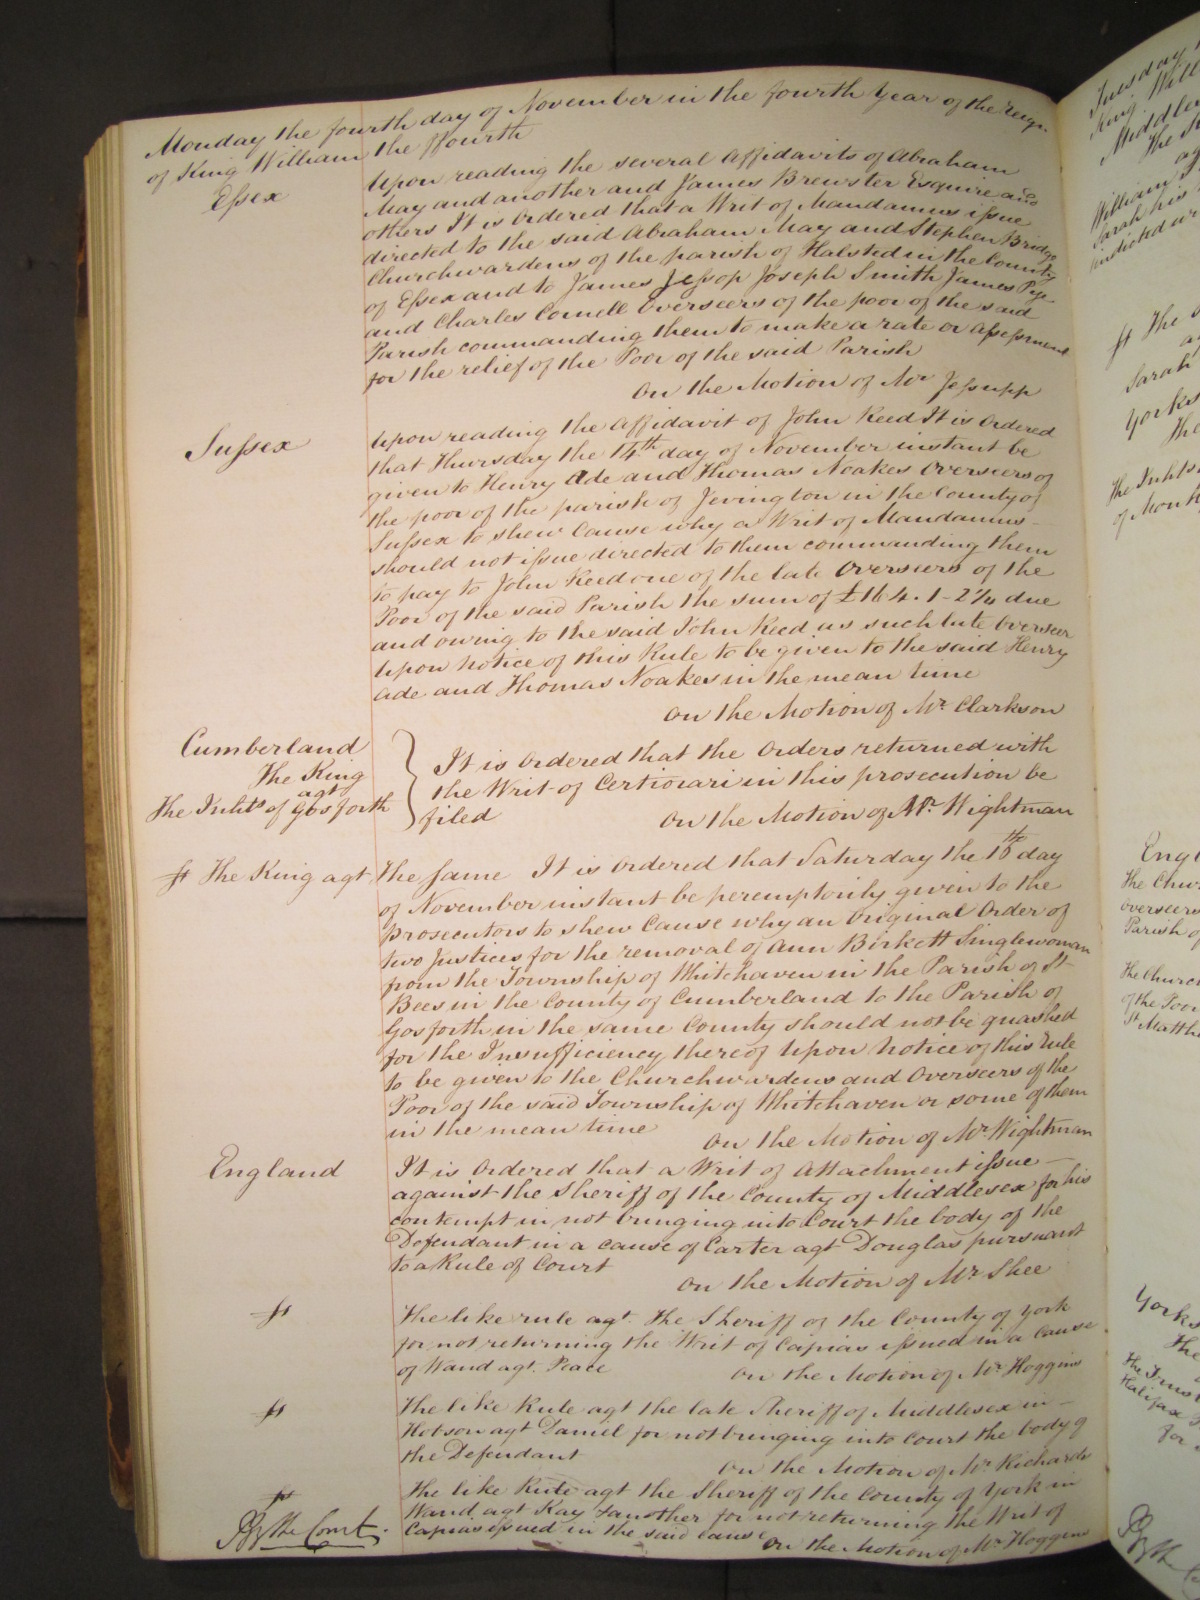 Monday the fourth day of November in the fourth Year of the reign
of King William the ffourth
Essex
Upon reading the several Affidavits of Abraham
May and another and James Brewster Esquire and
others It is ordered that a Writ of Mandamus issue
directed to the said Abraham May and Stephen Bridge
Churchwardens of the parish of Halsted in the County
of Essex and to James Jessop Joseph Smith James Pye
and Charles Cornell Overseers of the poor of the said
Parish commanding them to make a rate or assessment
for the relief of the Poor of the said Parish
On the Motion of Mr Jessupp
Sussex
Upon reading the Affidavit of John Reed It is Ordered
that Thursday the 14th day of November instant be
given to Henry Ade and Thomas Noakes Overseers of
the poor of the parish of Jevington in the County of
Sussex to shew Cause why a Writ of Mandamus
should not issue directed to them commanding them
to pay to John Reed one of the late Overseers of the
Poor of the said Parish the sum of £164.1-2¼ due
and owing to the said John Reed as such late Overseer
Upon Notice of this Rule to be given to the said Henry
Ade and Thomas Noakes in the mean time
On the Motion of Mr Clarkson
Cumberland
The King
agt
The Inhts of Gosforth
It is Ordered that the Orders returned with
the Writ of Certiorari in this prosecution be
filed
On the Motion of Mr. Wightman
ſt The King agt the same It is Ordered that Saturday the 16th day
of November instant be peremptorily given to the
prosecutors to shew Cause why an Original Order of
two Justices for the removal of Ann Birkett Singlewoman
from the Township of Whitehaven in the Parish of St
Bees in the County of Cumberland to the Parish of
Gosforth in the same County should not be quashed
for the Insufficiency thereof Upon Notice of this Rule
to be given to the Churchwardens and Overseers of the
Poor of the said Township of Whitehaven or some of them
in the mean time
On the Motion of Mr Wightman
England
It is Ordered that a Writ of Attachment issue
against the Sheriff of the County of Middlesex for his
contempt in not bringing into Court the body of the
Defendant in a cause of Carter agt Douglas pursuant
to a Rule of Court
On the Motion of Mr Shee
ſt
The like rule agt. The Sheriff of the County of York
for not returning the Writ of Capias issued in a Cause
of Wand agt. Peace
On the Motion of Mr Hoggins
ſt
The like Rule agt the late Sheriff of Middlesex in
Hobson agt Daniel for not bringing into Court the body of
the Defendant
On the Motion of Mr Richards
ſt
The like Rule agt the Sheriff of the County of York in
Wand agt Kay & another for not returning the Writ of
Capias issued in the said cause
On the Motion of Mr Hoggins
By the Court
Tuesday
King Will
Middle
The
William
Sarah his
indicted
ſt The
Sarah
Yorks
The
The Inhts
of Monk
Engl
The Chur
Overseers
Parish of
The Church
of the Poor
St Matth
Yorks
The
Halifax
for
By the